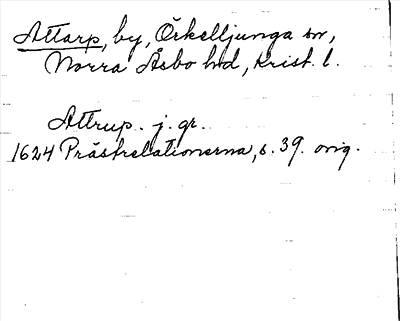 Attarp, by, Örkelljunga sn,
Norra Åsbo hd, Krist. l.
Attrup. j. gr.
1624 Prästrelationerna, s. 39. orig.